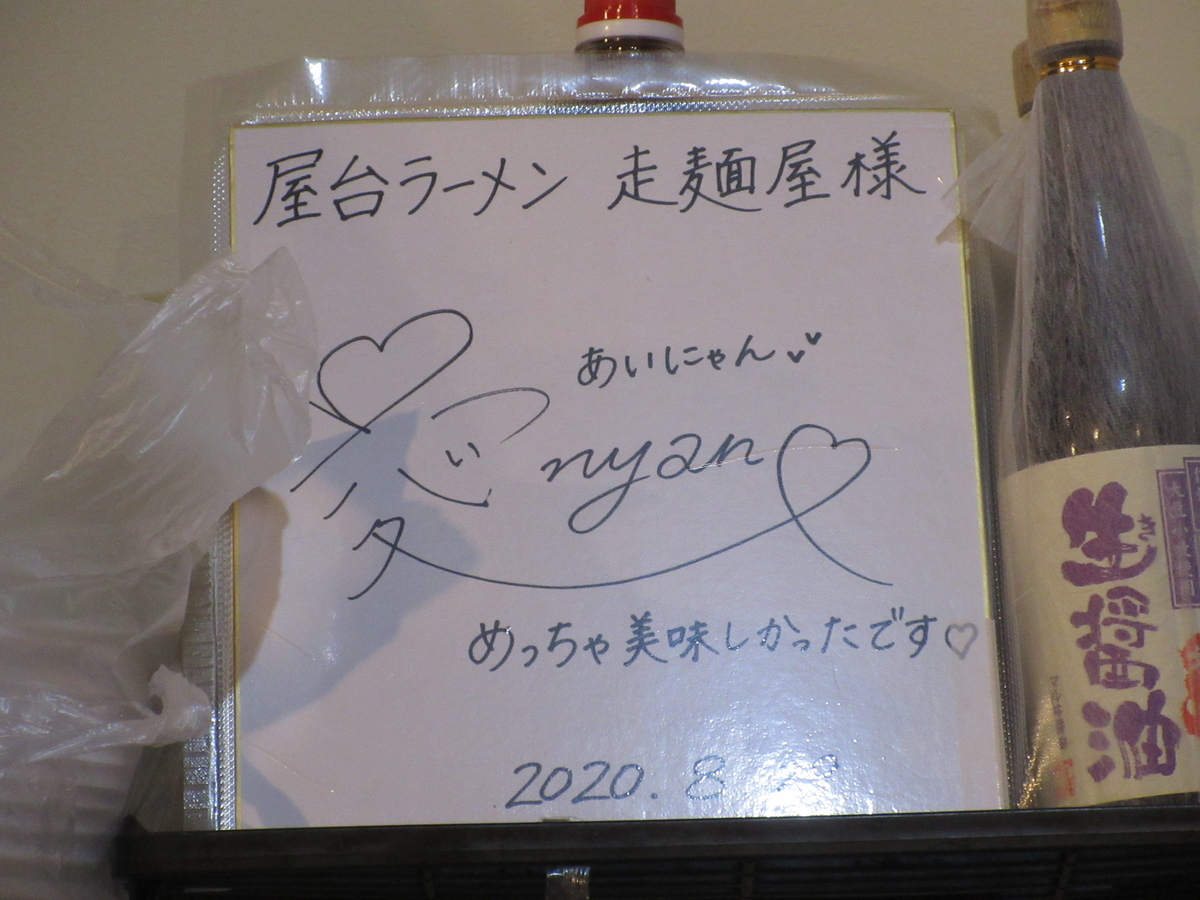 屋台ラーメン 走麺屋様
あいにゃん
愛nyan
めっちゃ美味しかったです♡
2020.8
生醤油
きじょうゆ